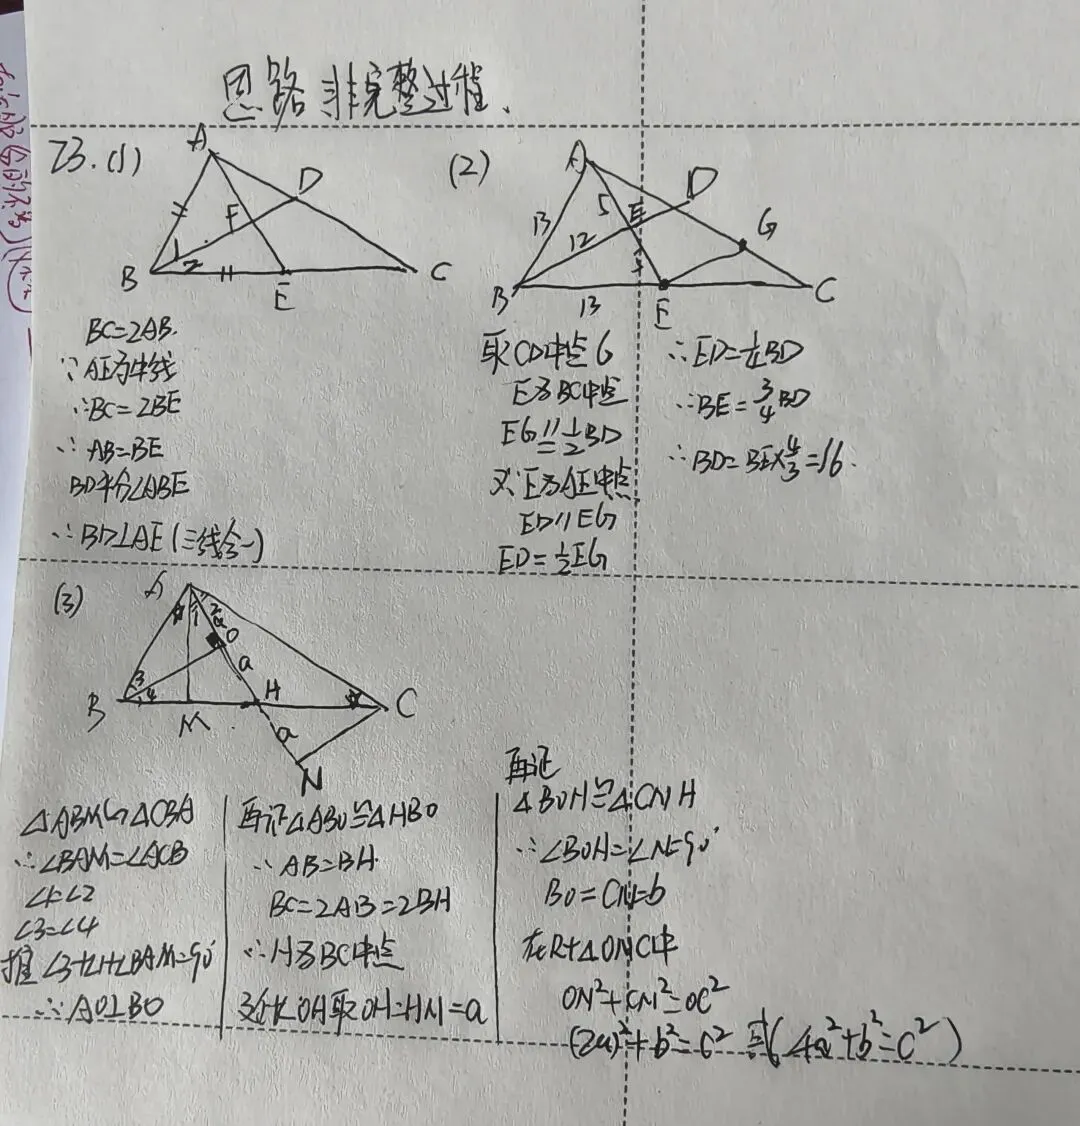 思路 非完整过程.
23.(1)
A
D
F
1
2
B
E
C
BC=2AB.
∵AE为中线
∴BC=2BE
∴AB=BE
BD平分∠ABE
∴BD⊥AE(三线合一)
(2)
A
D
5
E
G
13
12
B
13
E
C
取CD中点G
E为BC中点
EG∥=½BD
又∵E为AE中点
ED∥EG
ED=½EG
∴ED=¼BD
∴BE=¾BD
∴BD=BE×4/3=16.
(3)
A
1
2
a
O
a
3
4
B
M
H
C
a
N
△ABM∽△CBA
∴∠BAM=∠ACB
∠1=∠2
∠3=∠4
推∠3+∠1+∠BAM=90°
∴AO⊥BO
再证△ABO≌△HBO
∴AB=BH.
BC=2AB=2BH
∴H为BC中点
延长OH取OH=HN=a
再证
△BOH≌△CNH
∴∠BOH=∠N=90°
BO=CN=b
在Rt△ONC中
ON²+CN²=OC²
(2a)²+b²=c² 或(4a²+b²=c²)